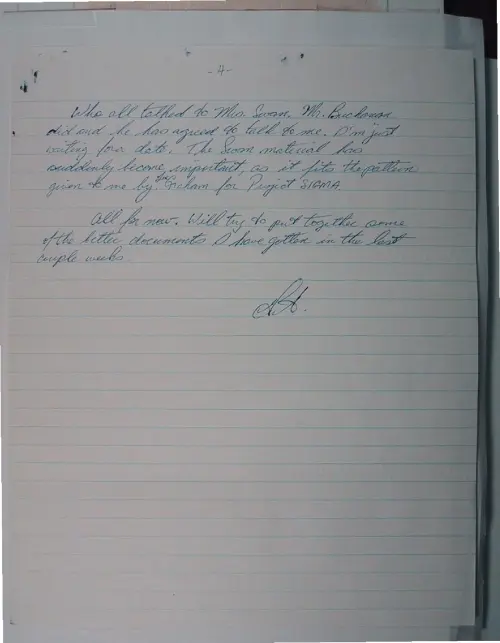 -4-
Who all talked to Mrs. Swan. Mr. Buchanan
did and he has agreed to talk to me. I'm just
waiting for a date. The Swan material has
suddenly become important, as it fits the pattern
given to me by for Project SIGMA.
All for now. Will try to put together some
of the better documents I have gotten in the last
couple weeks.